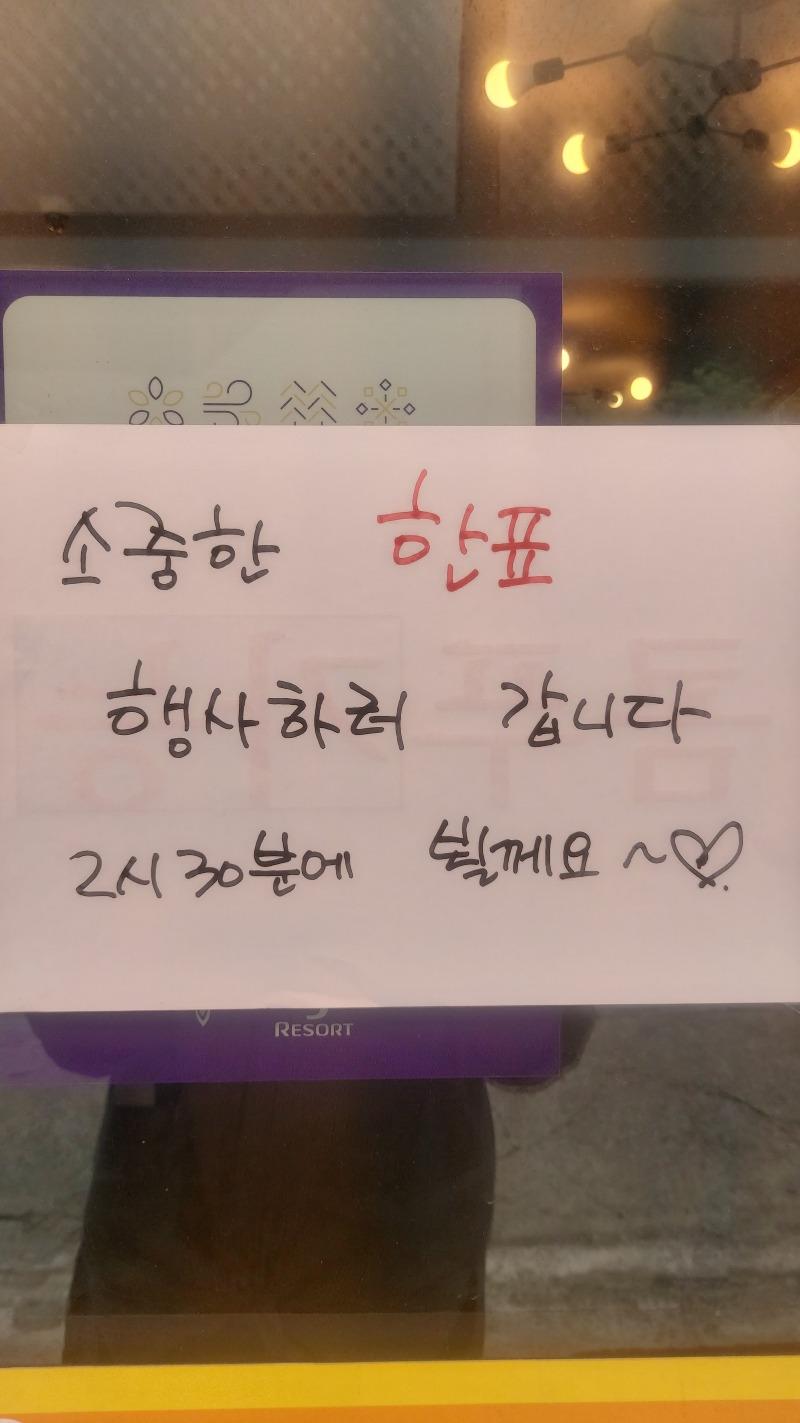 소중한 한표
행사하러 갑니다
2시 30분에 뵐께요 ~♡.
RESORT